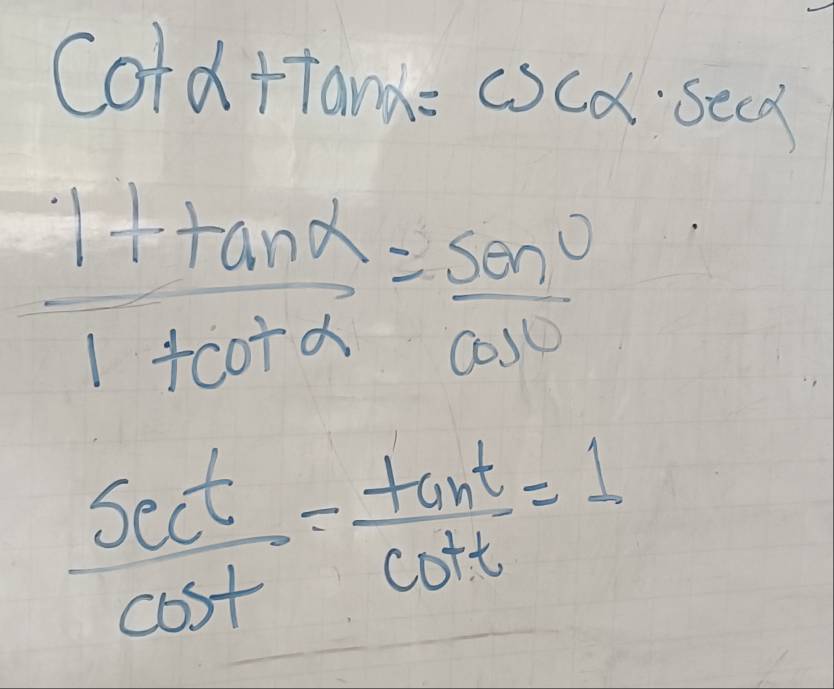 Cot α + Tan α = csc α · sec α
1 + tan α / 1 + cot α = sen θ / cos θ
sec t / cos t - tan t / cot t = 1